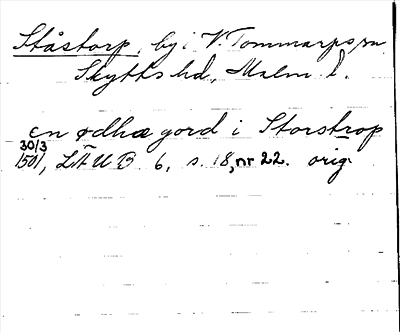 Ståstorp, by i V. Tommarps sn
Skytts hd, Malm. l.
en ødhæ gord i Storstrop
30/3
1501, LÄUB 6, s. 18, nr 22. orig.